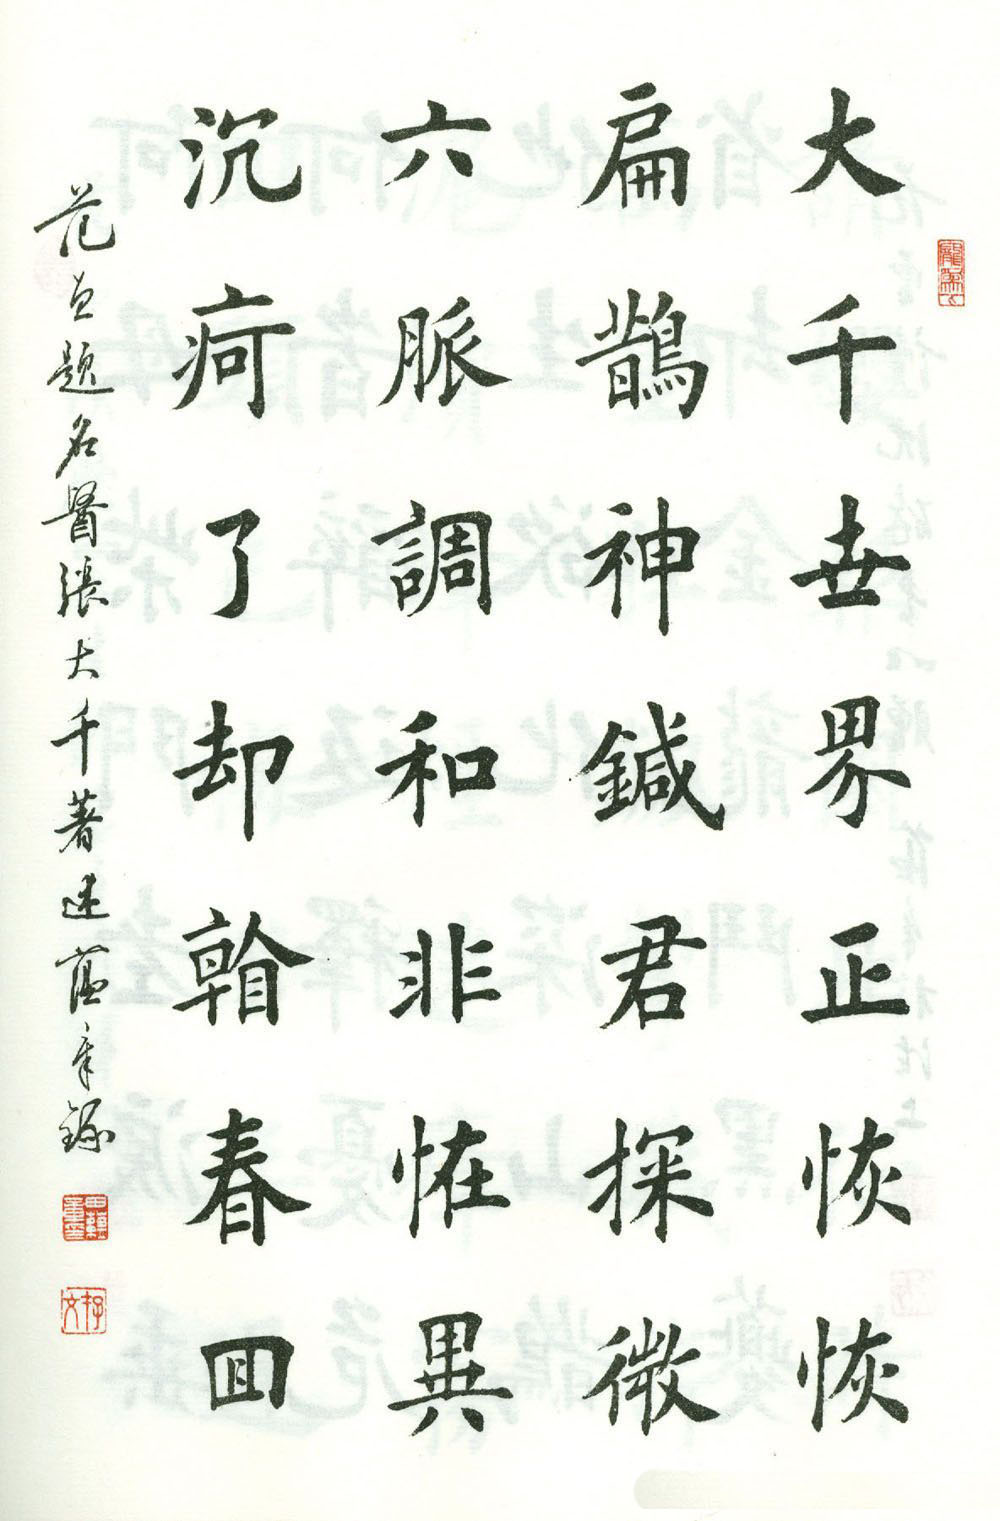 大千世界正恢恢
扁鵲神鍼君探微
六脈調和非恠異
沉疴了却春回
范曾題名醫張大千著述蘊章録